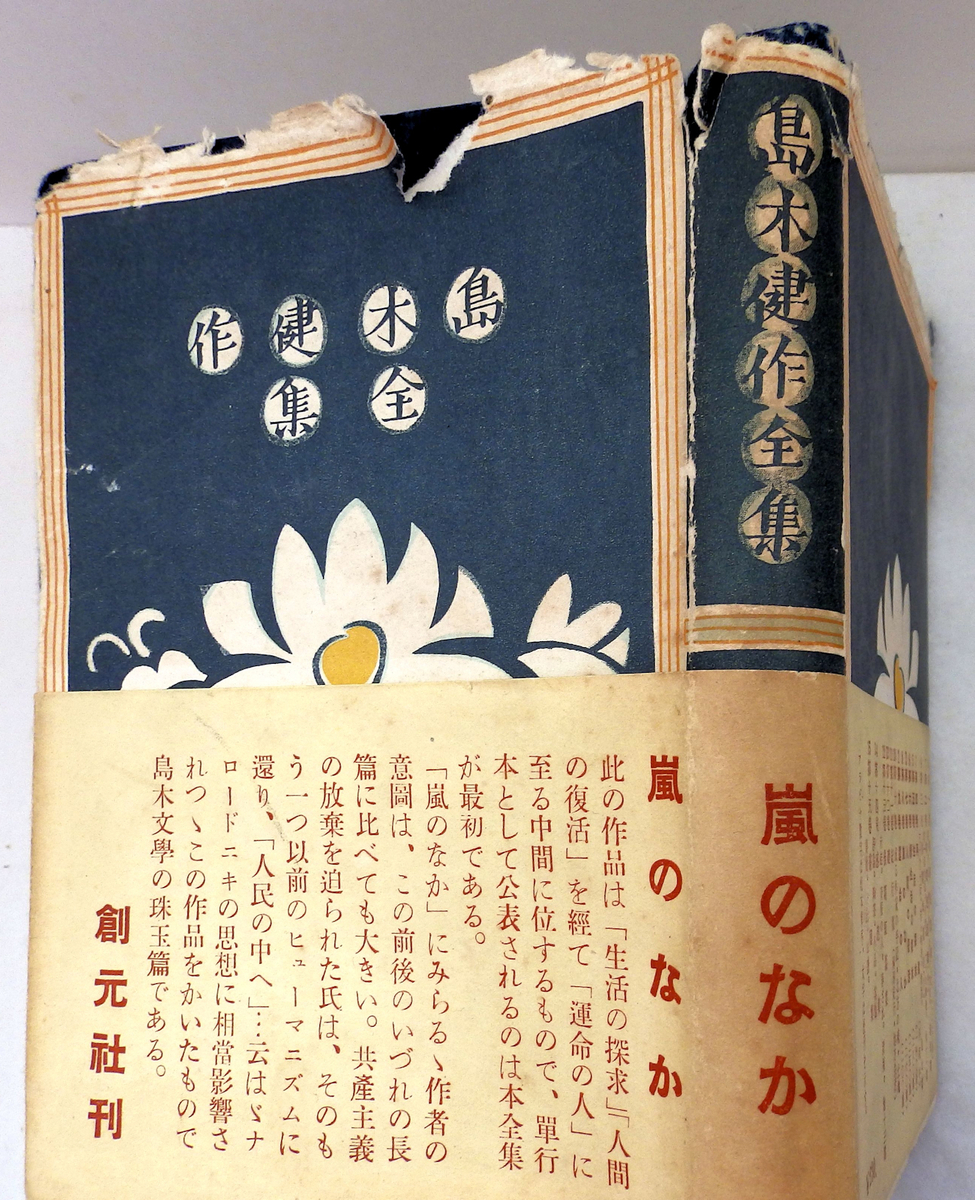 島木健作
全集
島木健作全集
嵐のなか
嵐のなか
此の作品は「生活の探求」「人間
の復活」を經て「運命の人」に
至る中間に位するもので、單行
本として公表されるのは本全集
が最初である。
「嵐のなか」にみらるゝ作者の
意圖は、この前後のいづれの長
篇に比べても大きい。共產主義
の放棄を迫られた氏は、そのも
う一つ以前のヒューマニズムに
還り、「人民の中へ」…云はゞナ
ロードニキの思想に相當影響さ
れつゝこの作品をかいたもので
島木文學の珠玉篇である。
創元社刊